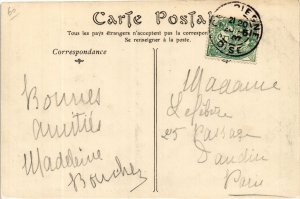 60
Carte Postale
Tous les pays étrangers n'acceptent pas la correspondance
Se renseigner à la poste.
Correspondance
21 50
OISE
Bonnes
amitiés
Madeleine
Bouchez
Madame
Lefebvre
25 Passage
Dandin
Paris